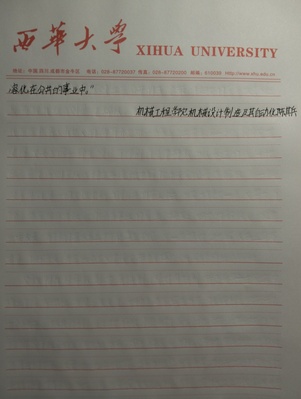 西华大学 XIHUA UNIVERSITY
地址：中国.四川.成都市金牛区 电话：028-87720037 传真：028-87720200 邮编：610039 http://www.xhu.edu.cn
在公共的事业中。”
机械工程学院机械设计制造及其自动化